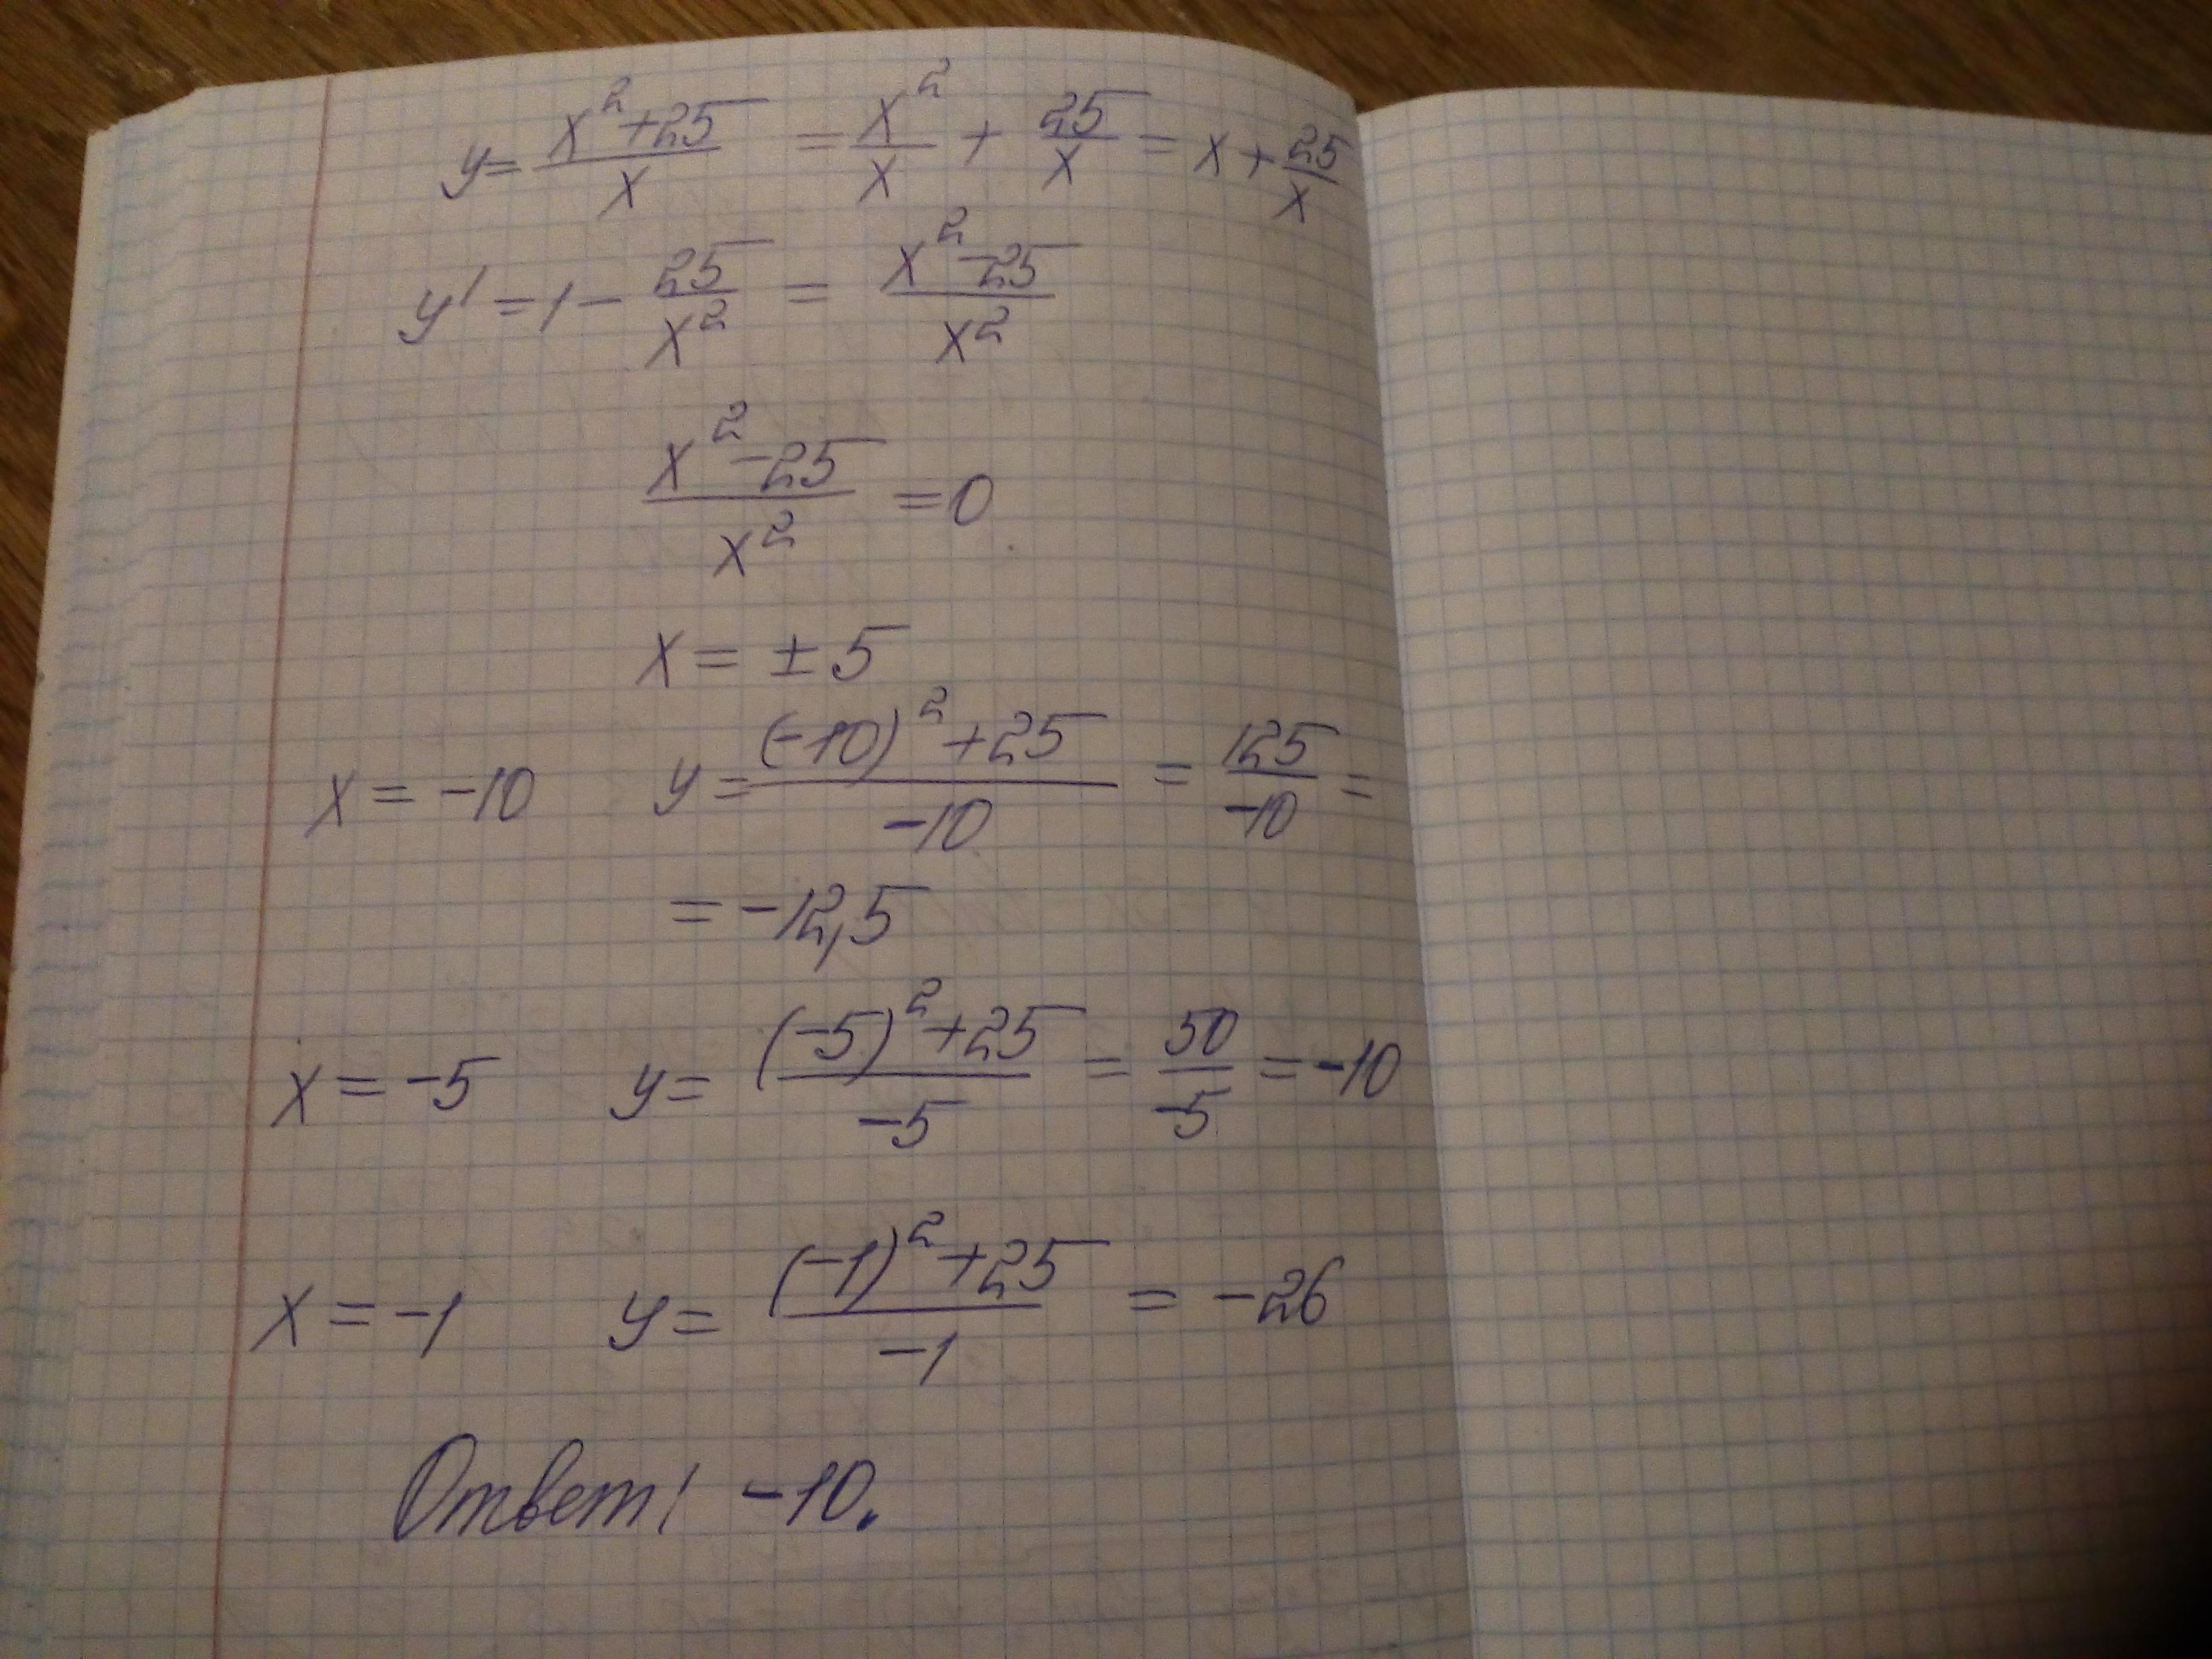 y = (x² + 25)/x = x²/x + 25/x = x + 25/x
y' = 1 − 25/x² = (x² − 25)/x²
(x² − 25)/x² = 0
x = ± 5
x = −10 y = ((−10)² + 25)/−10 = 125/−10 =
= −12,5
x = −5 y = ((−5)² + 25)/−5 = 50/−5 = −10
x = −1 y = ((−1)² + 25)/−1 = −26
Ответ: −10.